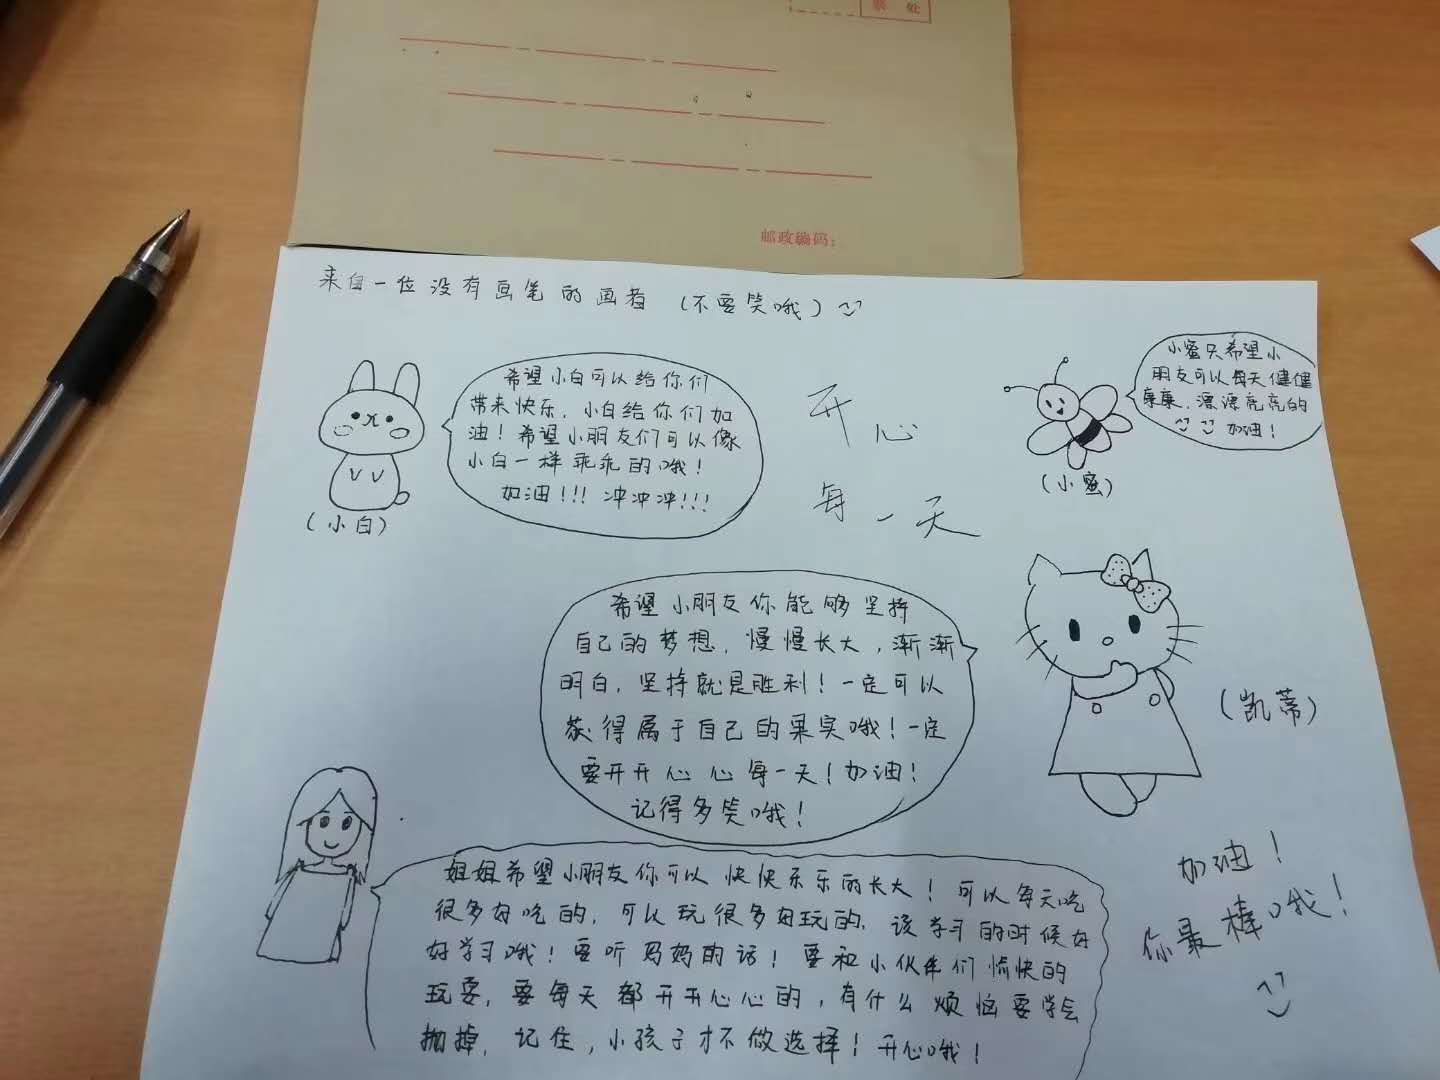 票处
邮政编码：
来自一位没有画笔的画者（不要笑哦）
希望小白可以给你们
带来快乐，小白给你们加
油！希望小朋友们可以像
小白一样乖乖的哦！
加油！！！冲冲冲！！！
（小白）
开心
每一天
小蜜只希望小
朋友可以每天健健
康康，漂漂亮亮的
加油！
（小蜜）
希望小朋友你能够坚持
自己的梦想，慢慢长大，渐渐
明白，坚持就是胜利！一定可以
获得属于自己的果实哦！一定
要开开心心每一天！加油！
记得多笑哦！
（凯蒂）
姐姐希望小朋友你可以快快乐乐的长大！可以每天吃
很多好吃的，可以玩很多好玩的，该学习的时候好
好学习哦！要听妈妈的话！要和小伙伴们愉快的
玩耍，要每天都开开心心的，有什么烦恼要学会
抛掉，记住，小孩子才不做选择！开心哦！
加油！
你最棒哦！